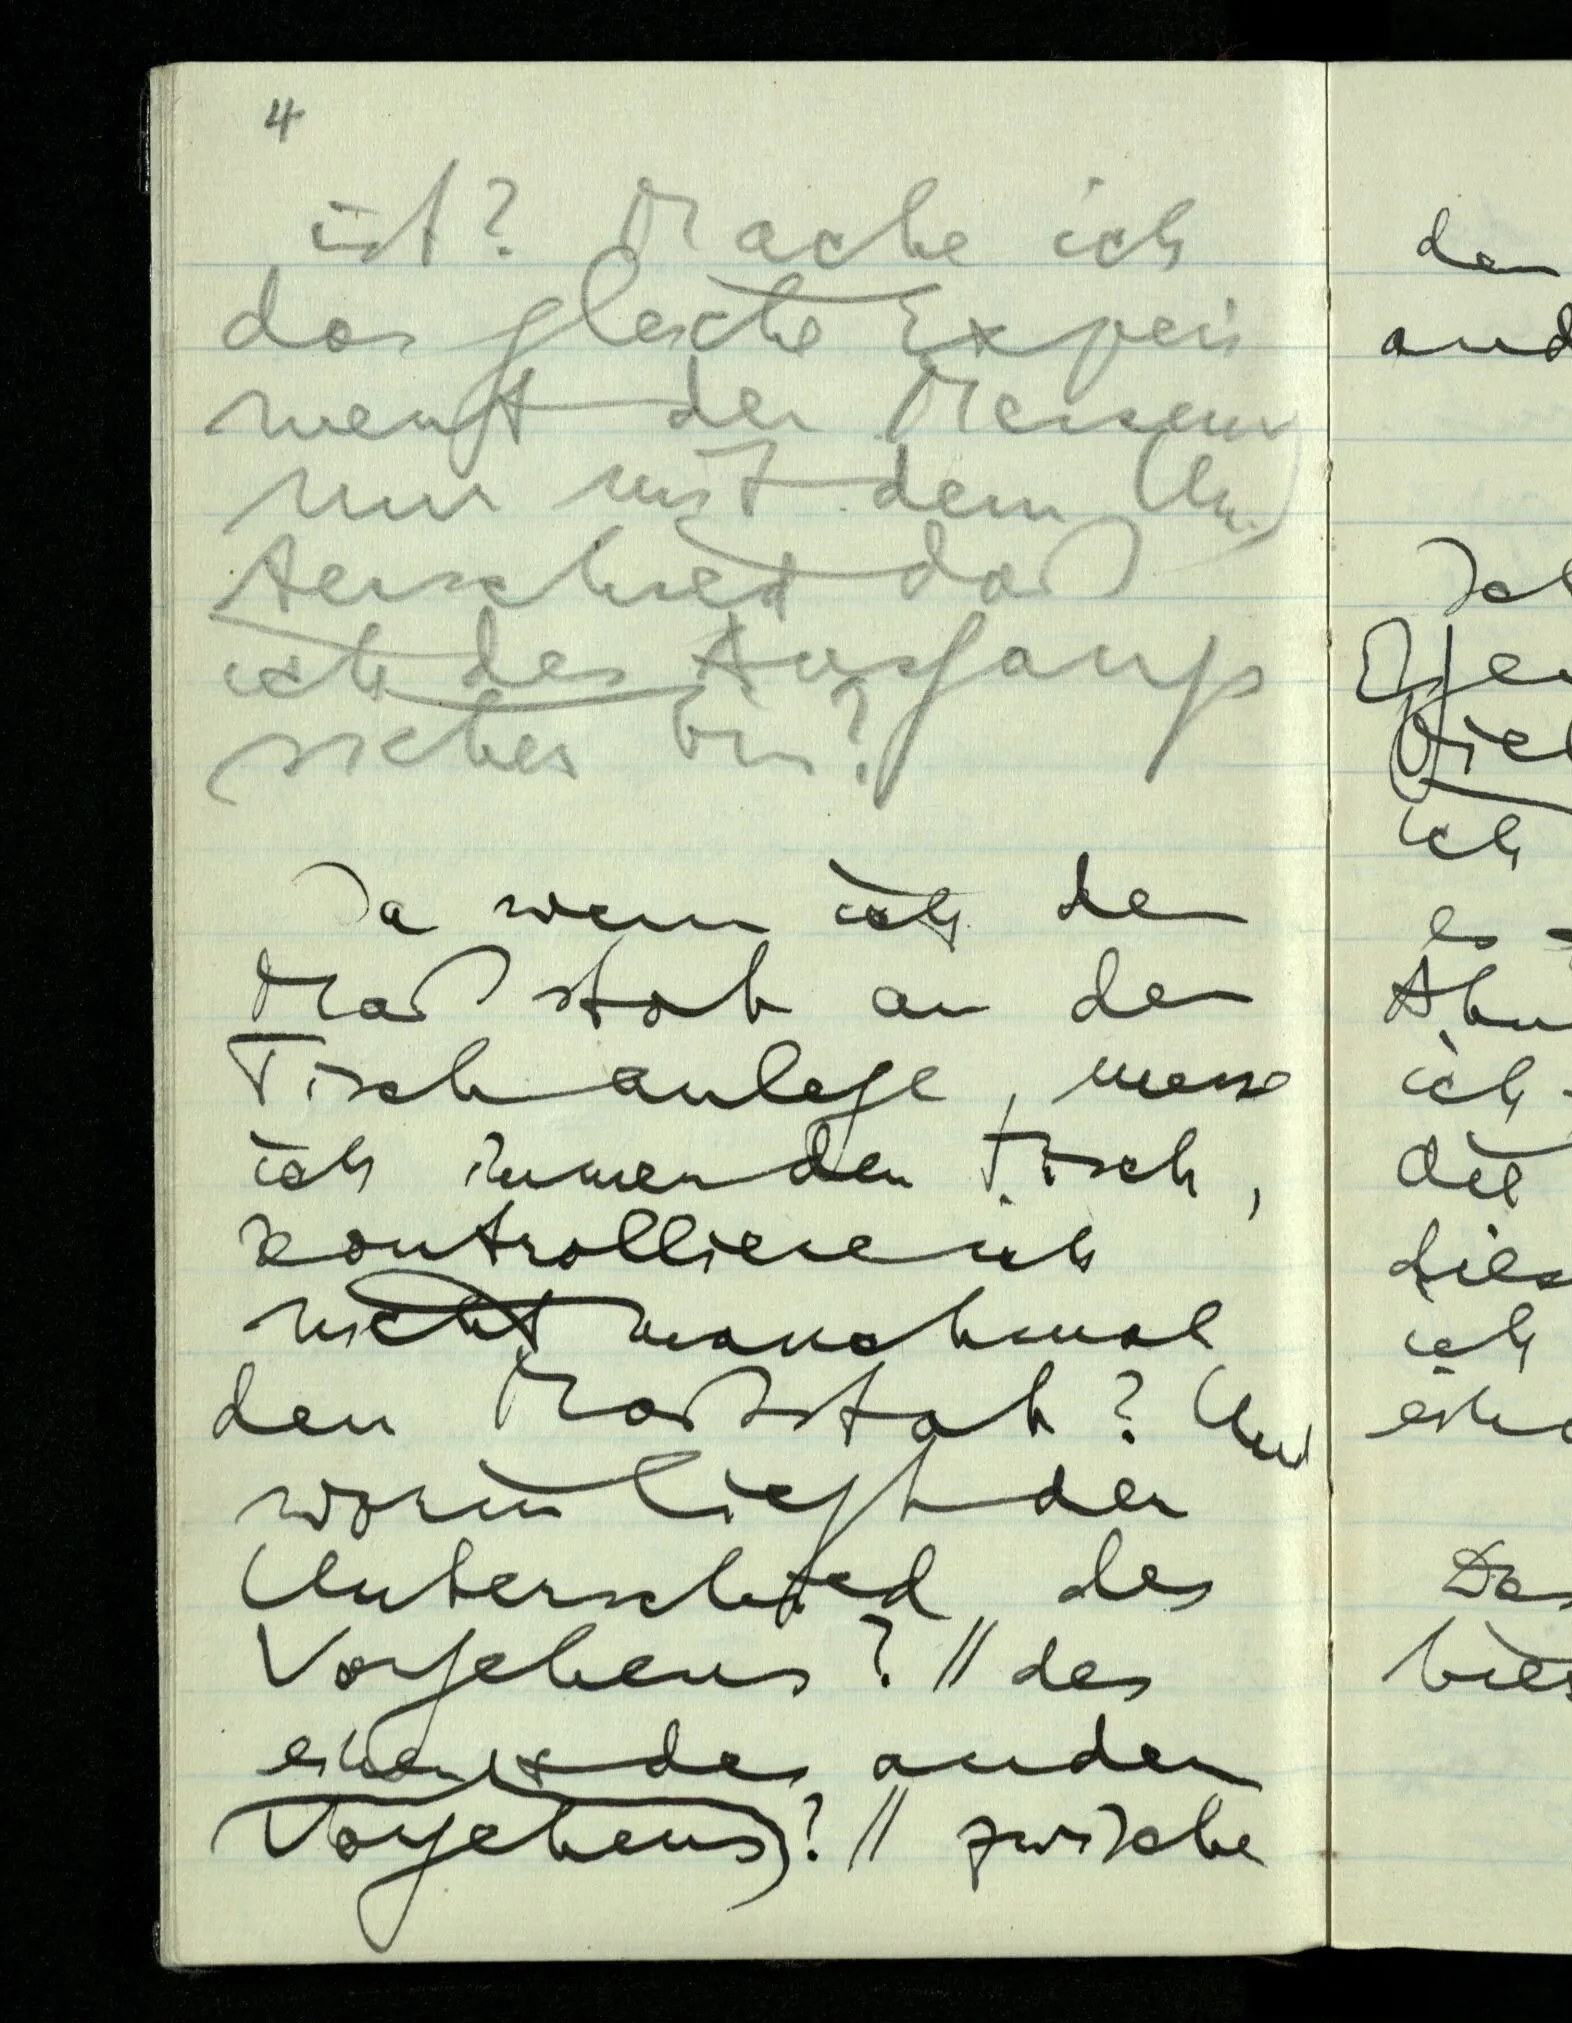 4
ist? Mache ich
das gleiche Experi
ment der Messung
nur mit dem Un
terschied daß
ich des Ausgangs
sicher bin?
Ja wenn ich den
Maßstab an den
Tisch anlege, messe
ich immer den Tisch,
kontrolliere ich
nicht manchmal
den Maßstab? Und
worin liegt der
Unterschied des
Vorgehens? // des
einen & des andern
Vorgehens)? // zwische
den
and
Ich
ich
es
ich
die
dies
ich
Das